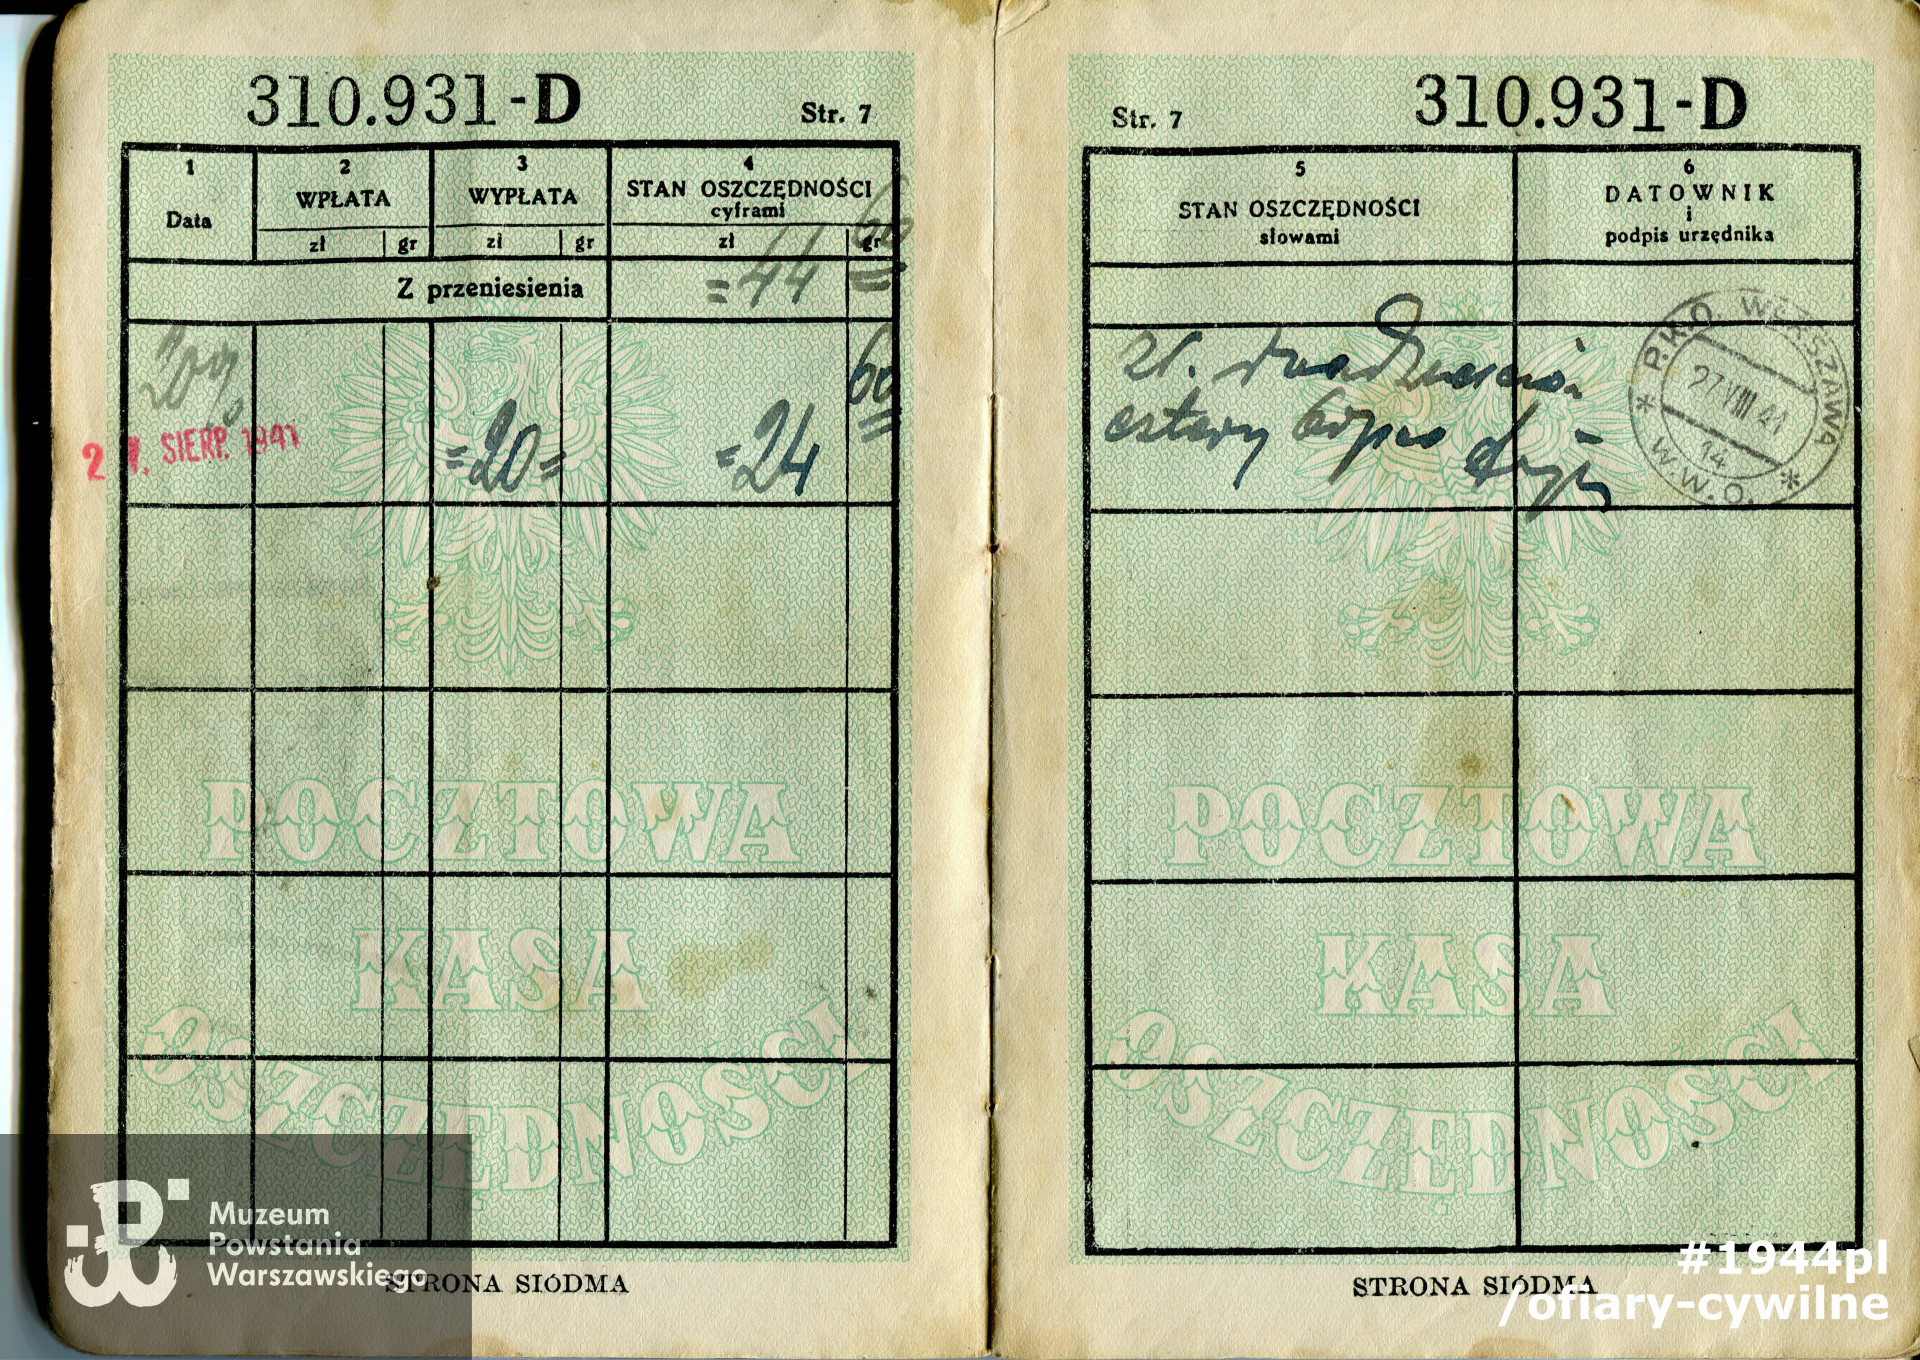 310.931-D
Str. 7
1
Data
2
WPŁATA
zł gr
3
WYPŁATA
zł gr
4
STAN OSZCZĘDNOŚCI
cyframi
zł gr
Z przeniesienia
=44 60
27. SIERP. 1941
=20=
=24 60
POCZTOWA
KASA
OSZCZĘDNOŚCI
STRONA SIÓDMA
Str. 7
310.931-D
5
STAN OSZCZĘDNOŚCI
słowami
6
DATOWNIK
i
podpis urzędnika
zł. dwadzieścia
cztery
P.K.O. WARSZAWA
27 VIII 41
14
W.W.O.
POCZTOWA
KASA
OSZCZĘDNOŚCI
STRONA SIÓDMA
Muzeum
Powstania
Warszawskiego
#1944pl
/ofiary-cywilne